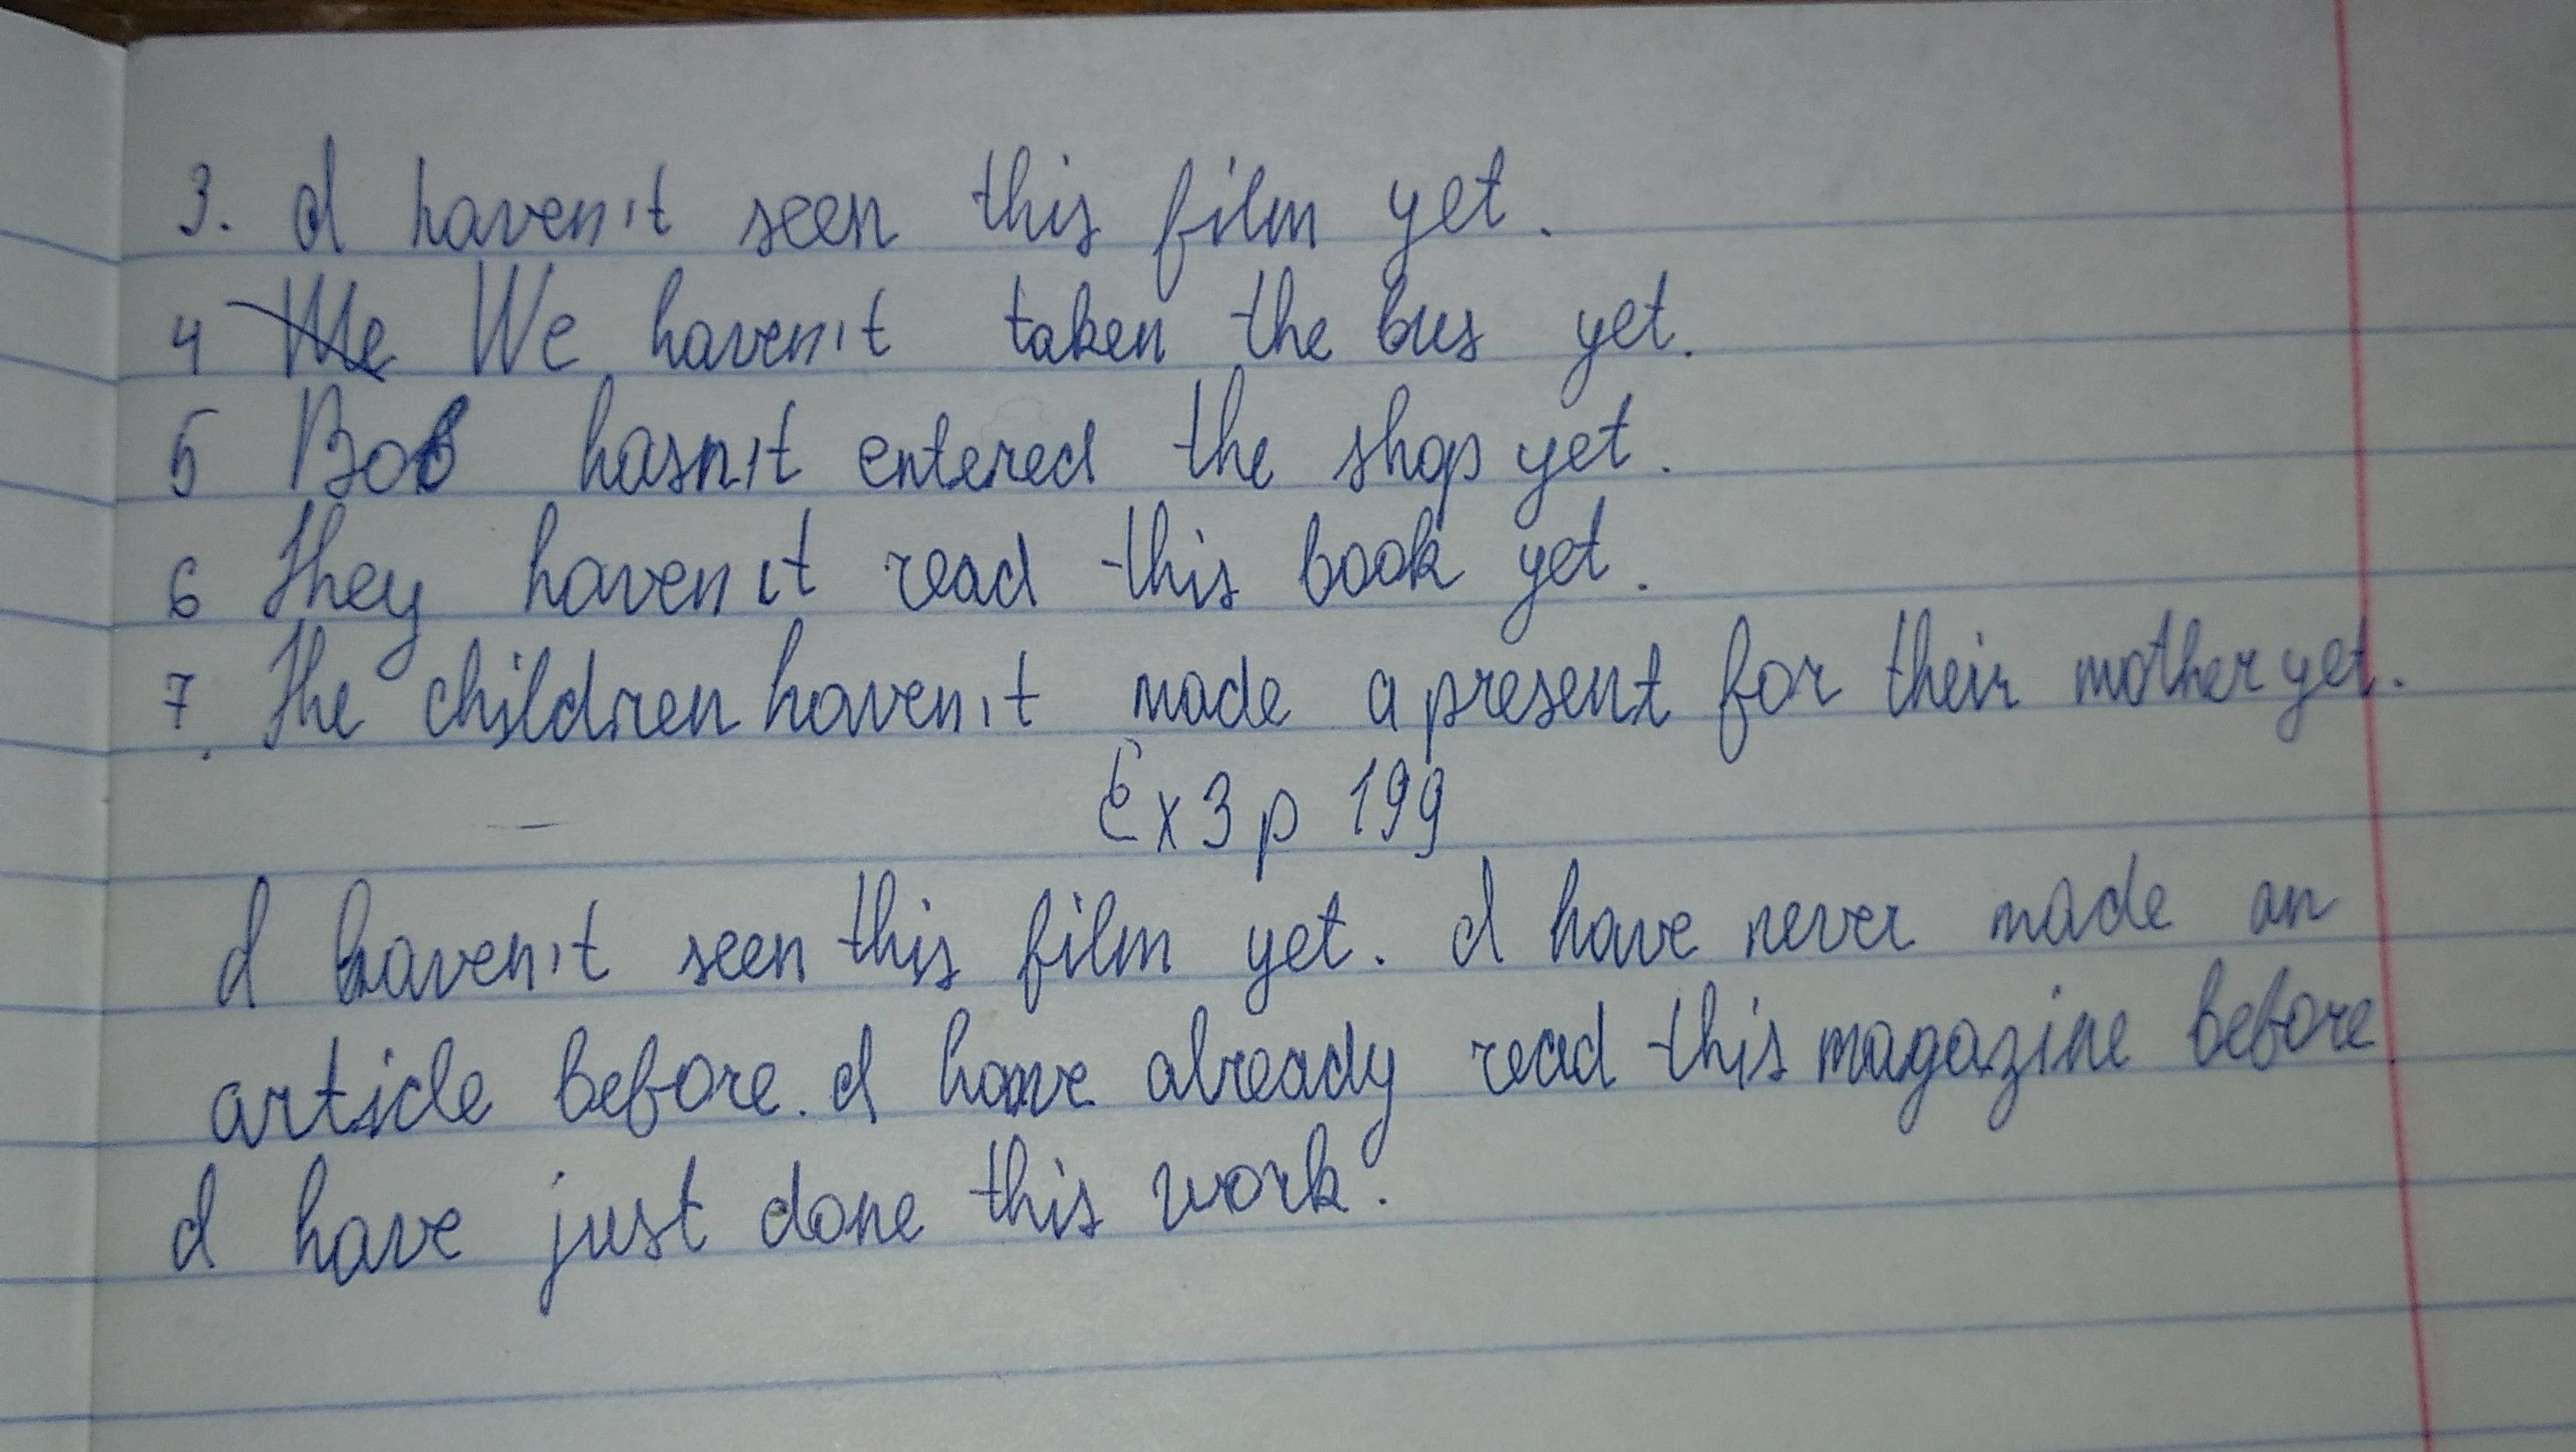 3. I haven't seen this film yet.
4 Me We haven't taken the bus yet.
5 Bob hasn't entered the shop yet.
6 They haven't read this book yet.
7. The children haven't made a present for their mother yet.
Ex 3 p 199
I haven't seen this film yet. I have never made an
article before. I have already read this magazine before
I have just done this work.